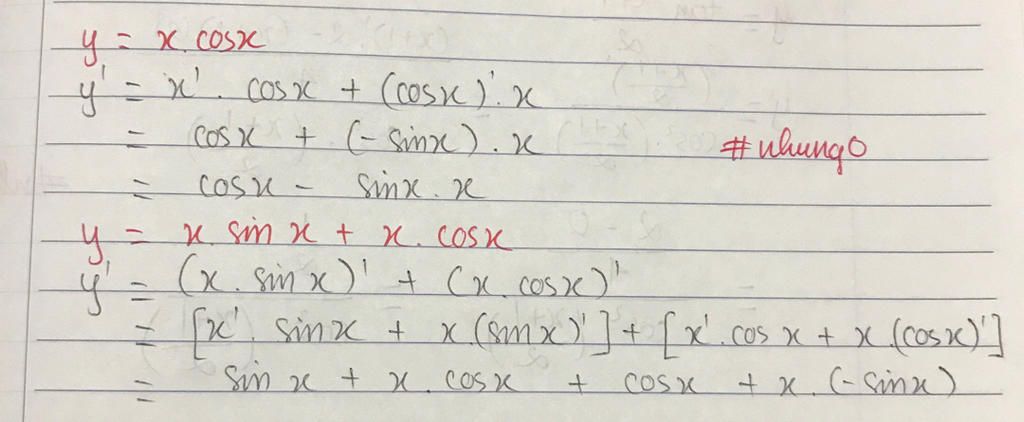 y = x.cosx
y' = x' . cosx + (cosx)'. x
= cosx + (-sinx). x
#nhung0
= cosx - sinx. x
y = x. sin x + x. cosx
y' = (x. sin x)' + (x. cosx)'
= [x'. sinx + x.(sinx)'] + [x'. cos x + x.(cosx)']
= sin x + x. cosx + cosx + x. (-sinx)